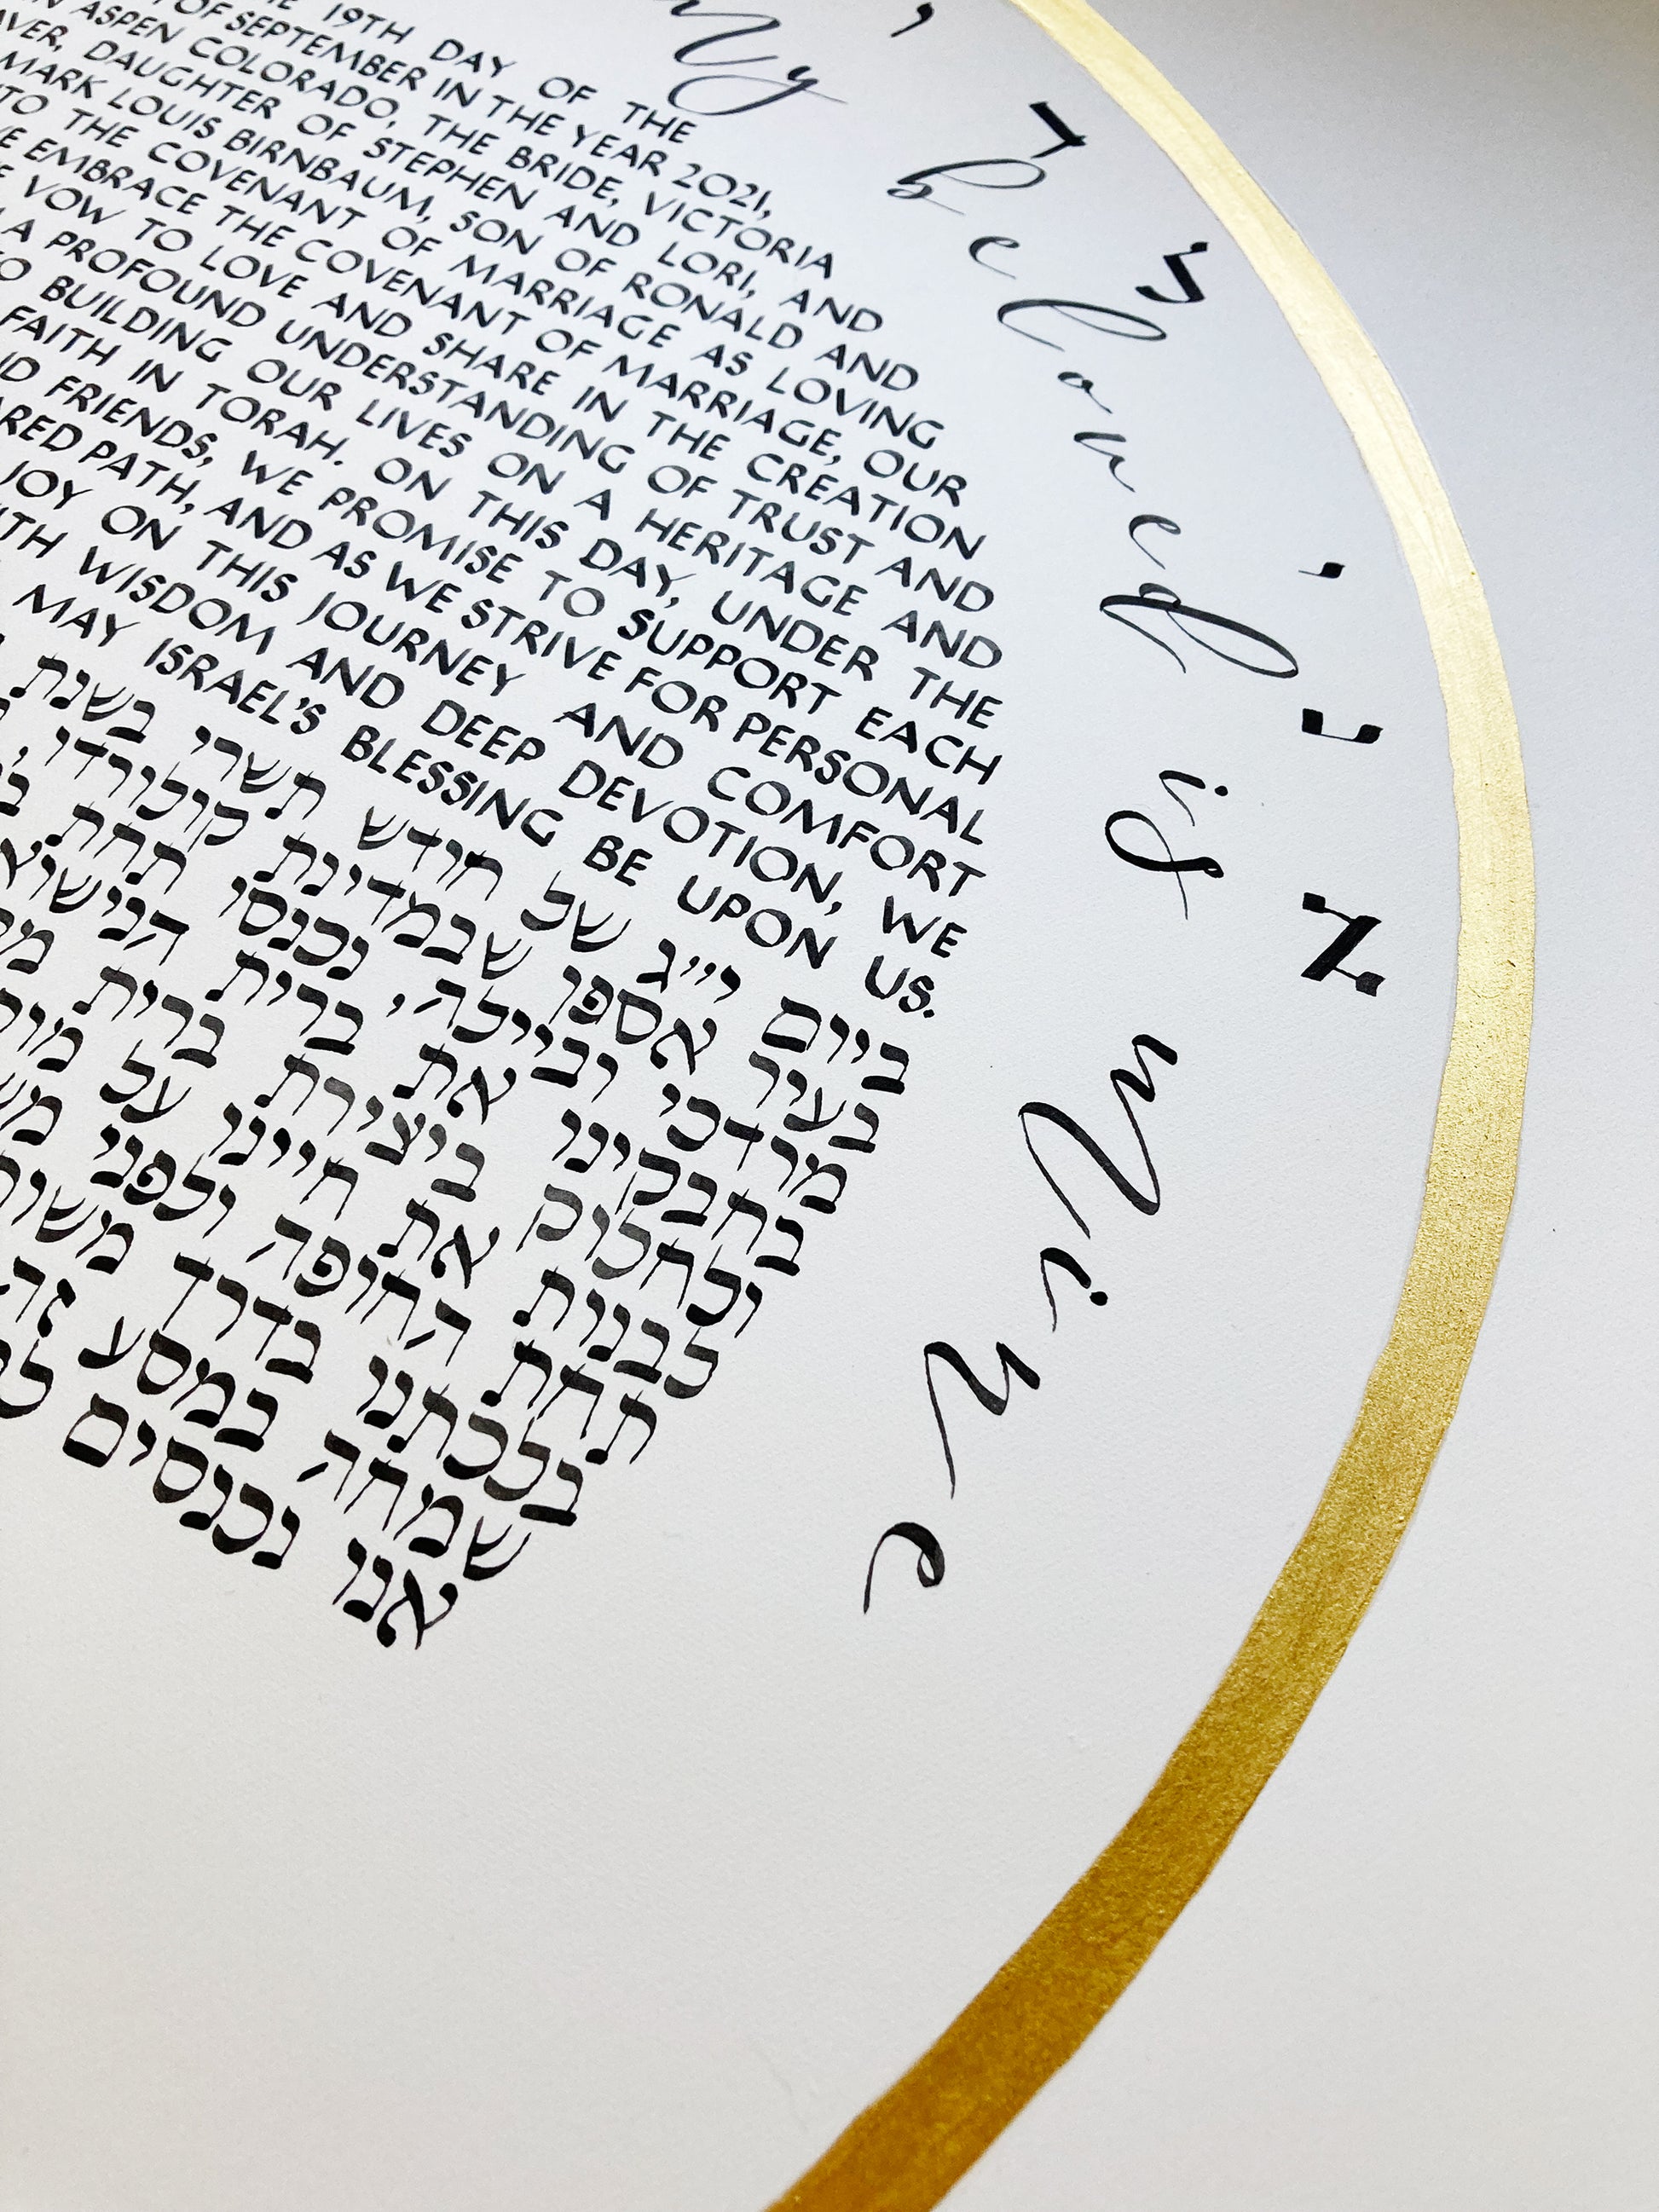 19TH DAY OF THE
OF SEPTEMBER IN THE YEAR 2021,
IN ASPEN COLORADO, THE BRIDE, VICTORIA
DAUGHTER OF STEPHEN AND LORI, AND
MARK LOUIS BIRNBAUM, SON OF RONALD AND
THE COVENANT OF MARRIAGE AS LOVING
EMBRACE THE COVENANT OF MARRIAGE, OUR
VOW TO LOVE AND SHARE IN THE CREATION
A PROFOUND UNDERSTANDING OF TRUST AND
BUILDING OUR LIVES ON A HERITAGE AND
FAITH IN TORAH. ON THIS DAY, UNDER THE
FRIENDS, WE PROMISE TO SUPPORT EACH
PATH, AND AS WE STRIVE FOR PERSONAL
JOY ON THIS JOURNEY AND COMFORT
WISDOM AND DEEP DEVOTION, WE
MAY ISRAEL'S BLESSING BE UPON US.
ביום י״ג של חודש תשרי בשנת
בעיר אספן שבמדינת קולורדו,
מרדכי וביילה, נכנסי תחת
בחבקינו את ברית
ולחלוק ביצירת ברית
לבנות את חיינו על
תחת החופה ולפני
בלכתנו בדרך
שמחה במסע
אנו נכנסים
My beloved is mine
אני לדו